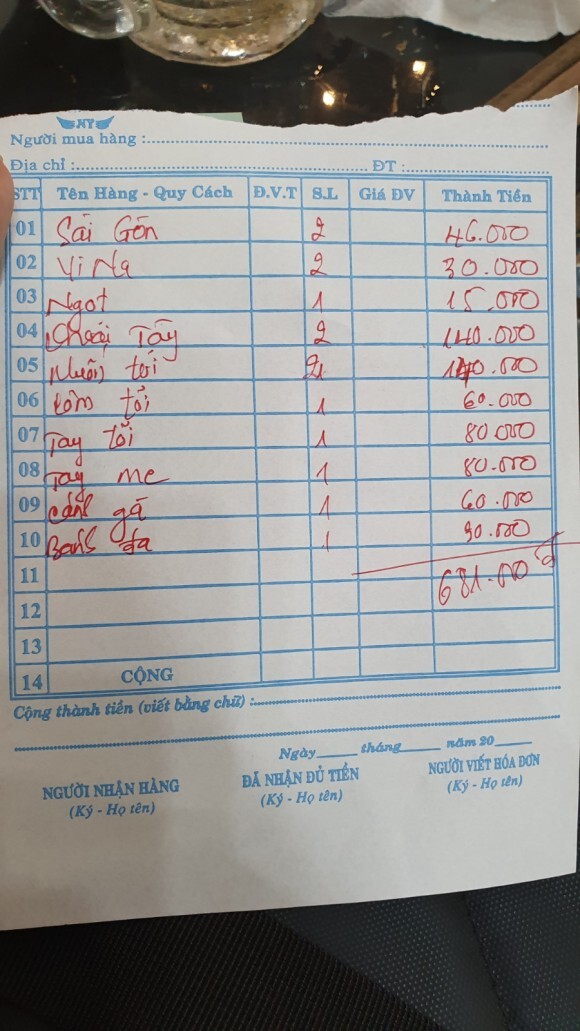 NY
Người mua hàng :
Địa chỉ : ĐT :
STT Tên Hàng - Quy Cách Đ.V.T S.L Giá ĐV Thành Tiền
01 Sài Gòn 2 46.000
02 Vi Na 2 30.000
03 Ngọt 1 15.000
04 Tây 2 140.000
05 tỏi
06 tỏi 1 60.000
07 Tay tỏi 1 80.000
08 Tay me 1 80.000
09 cánh gà 1 60.000
10 Banh đa 1 30.000
11 681.000 đ
12
13
14 CỘNG
Cộng thành tiền (viết bằng chữ) :
Ngày tháng năm 20
NGƯỜI NHẬN HÀNG ĐÃ NHẬN ĐỦ TIỀN NGƯỜI VIẾT HÓA ĐƠN
(Ký - Họ tên) (Ký - Họ tên) (Ký - Họ tên)